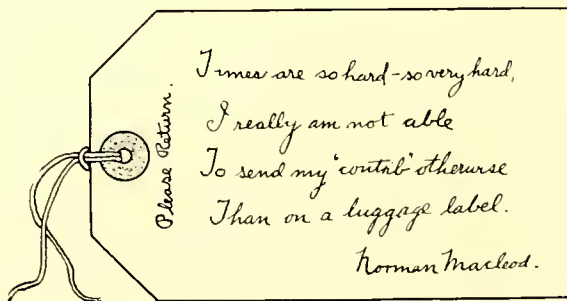 Please Return.
Times are so hard - so very hard,
I really am not able
To send my "contrib" otherwise
Than on a luggage label.
Norman Macleod.